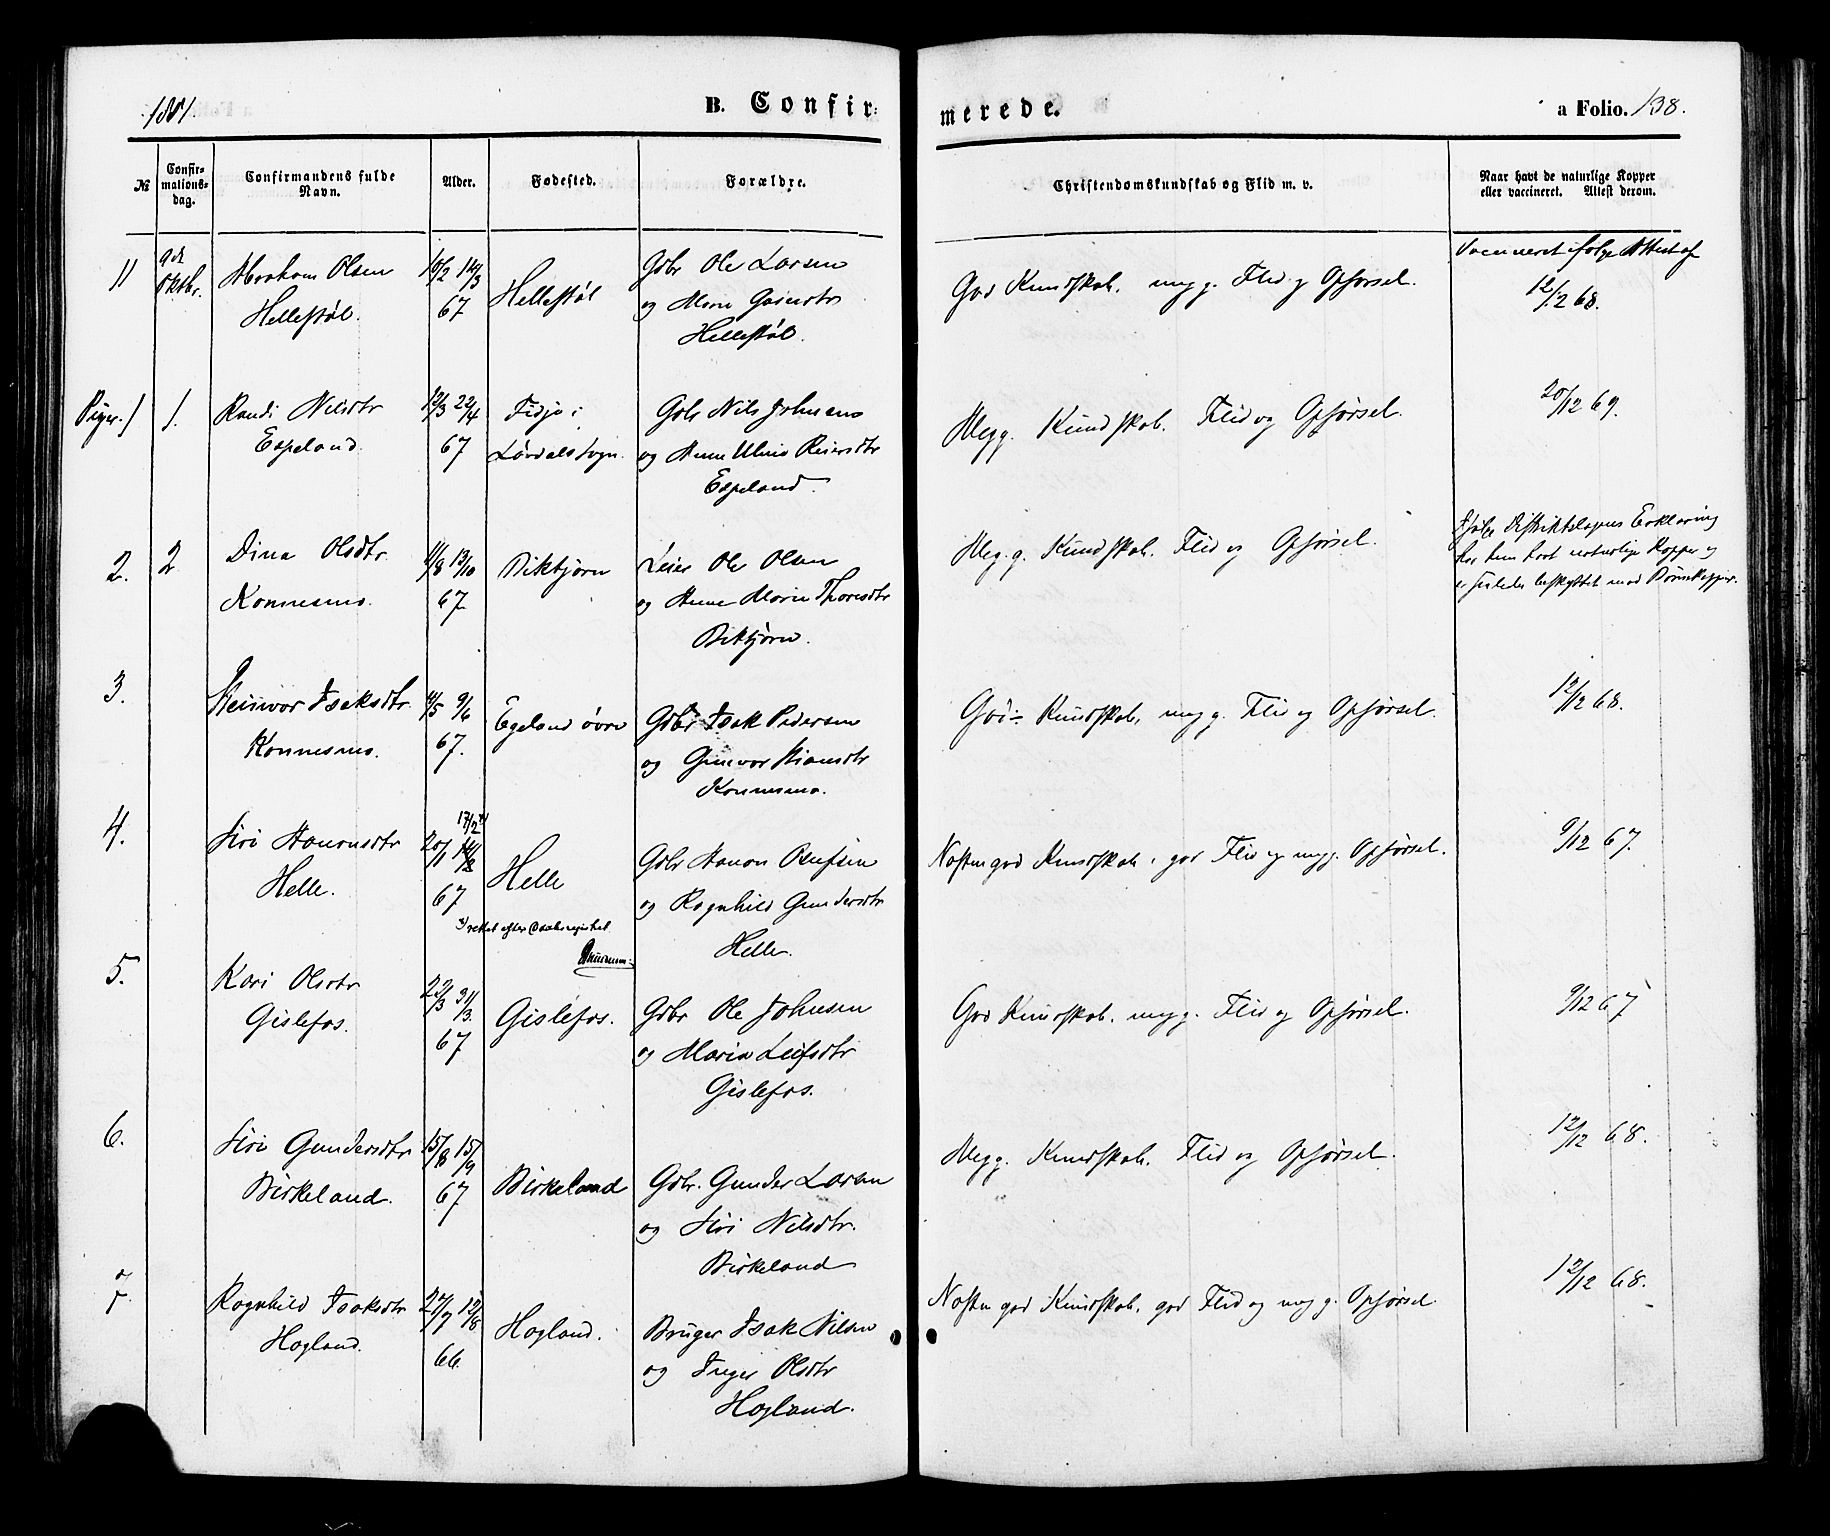 1881.
B. Confir-
merede.
a Folio. 138.
№
Confir-
mations-
dag.
Confirmandens fulde
Navn.
Alder.
Fødested.
Forældre.
Christendomskundskab og Flid m. v.
Naar havt de naturlige Kopper
eller vaccineret. Attest derom.
11
9de
Oktbr.
Abraham Olsen
Hellestøl.
67
Hellestøl
Gdbr Ole Larsen
og Marie
Hellestøl.
God Kundskab. meg g. Flid og Opførsel.
Vaccineret ifølge Attest af
12/12 68.
Piger. 1
1.
Randi Nilsdtr
Espeland.
12/3 22/4
67
Fidje i
Løvdals Sogn.
Gdbr Nils Johnsen
og Anne Reiersdtr
Espeland.
Meg g. Kundskab. Flid og Opførsel.
20/12 69.
2.
2
Dina Olsdtr.
Konnesmo.
11/8 13/10
67
Birkbjørn
Leier Ole Olsen
og Anne Marie Thorsdtr
Meg. g. Kundskab. Flid og Opførsel.
Ifølge Distriktslægens Erklæring
har hun havt naturlige Kopper og
er saaledes beskyttet mod Børnekopper.
3.
Steinvor Isaksdtr
Konnesmo.
4/5 9/6
67.
Egeland øvre
Gdbr Isak Pedersen
og Gunvor Stiansdtr
Konnesmo.
God Kundskab, meg g. Flid og Opførsel.
12/12 68.
4.
Siri Haavorsdtr
Helle.
20/1
67
Helle
rettet efter Daabsregistret.
Gdbr
og Ragnhild Gundersdtr
Helle.
Næsten god Kundskab, god Flid og meg g. Opførsel.
9/12 67.
5.
Kari Olsdtr
Gislefos.
22/3 31/3.
67
Gislefos.
Gdbr Ole Johnsen
og Maria Leifsdtr
Gislefos.
God Kundskab. meg g. Flid og Opførsel.
9/12 67
6.
Siri Gundersdtr
Birkeland.
15/8 15/9
67
Birkeland
Gdbr. Gunder Larsen
og Siri Nilsdtr.
Birkeland
Meg g. Kundskab. Flid og Opførsel.
12/12 68.
7.
Ragnhild Isaksdtr
Hogland.
27/7 12/8
66.
Hogland.
Bruger Isak Nilsen
og Inger Olsdtr
Hogland.
Næsten god Kundskab, god Flid og meg g. Opførsel
12/12 68.